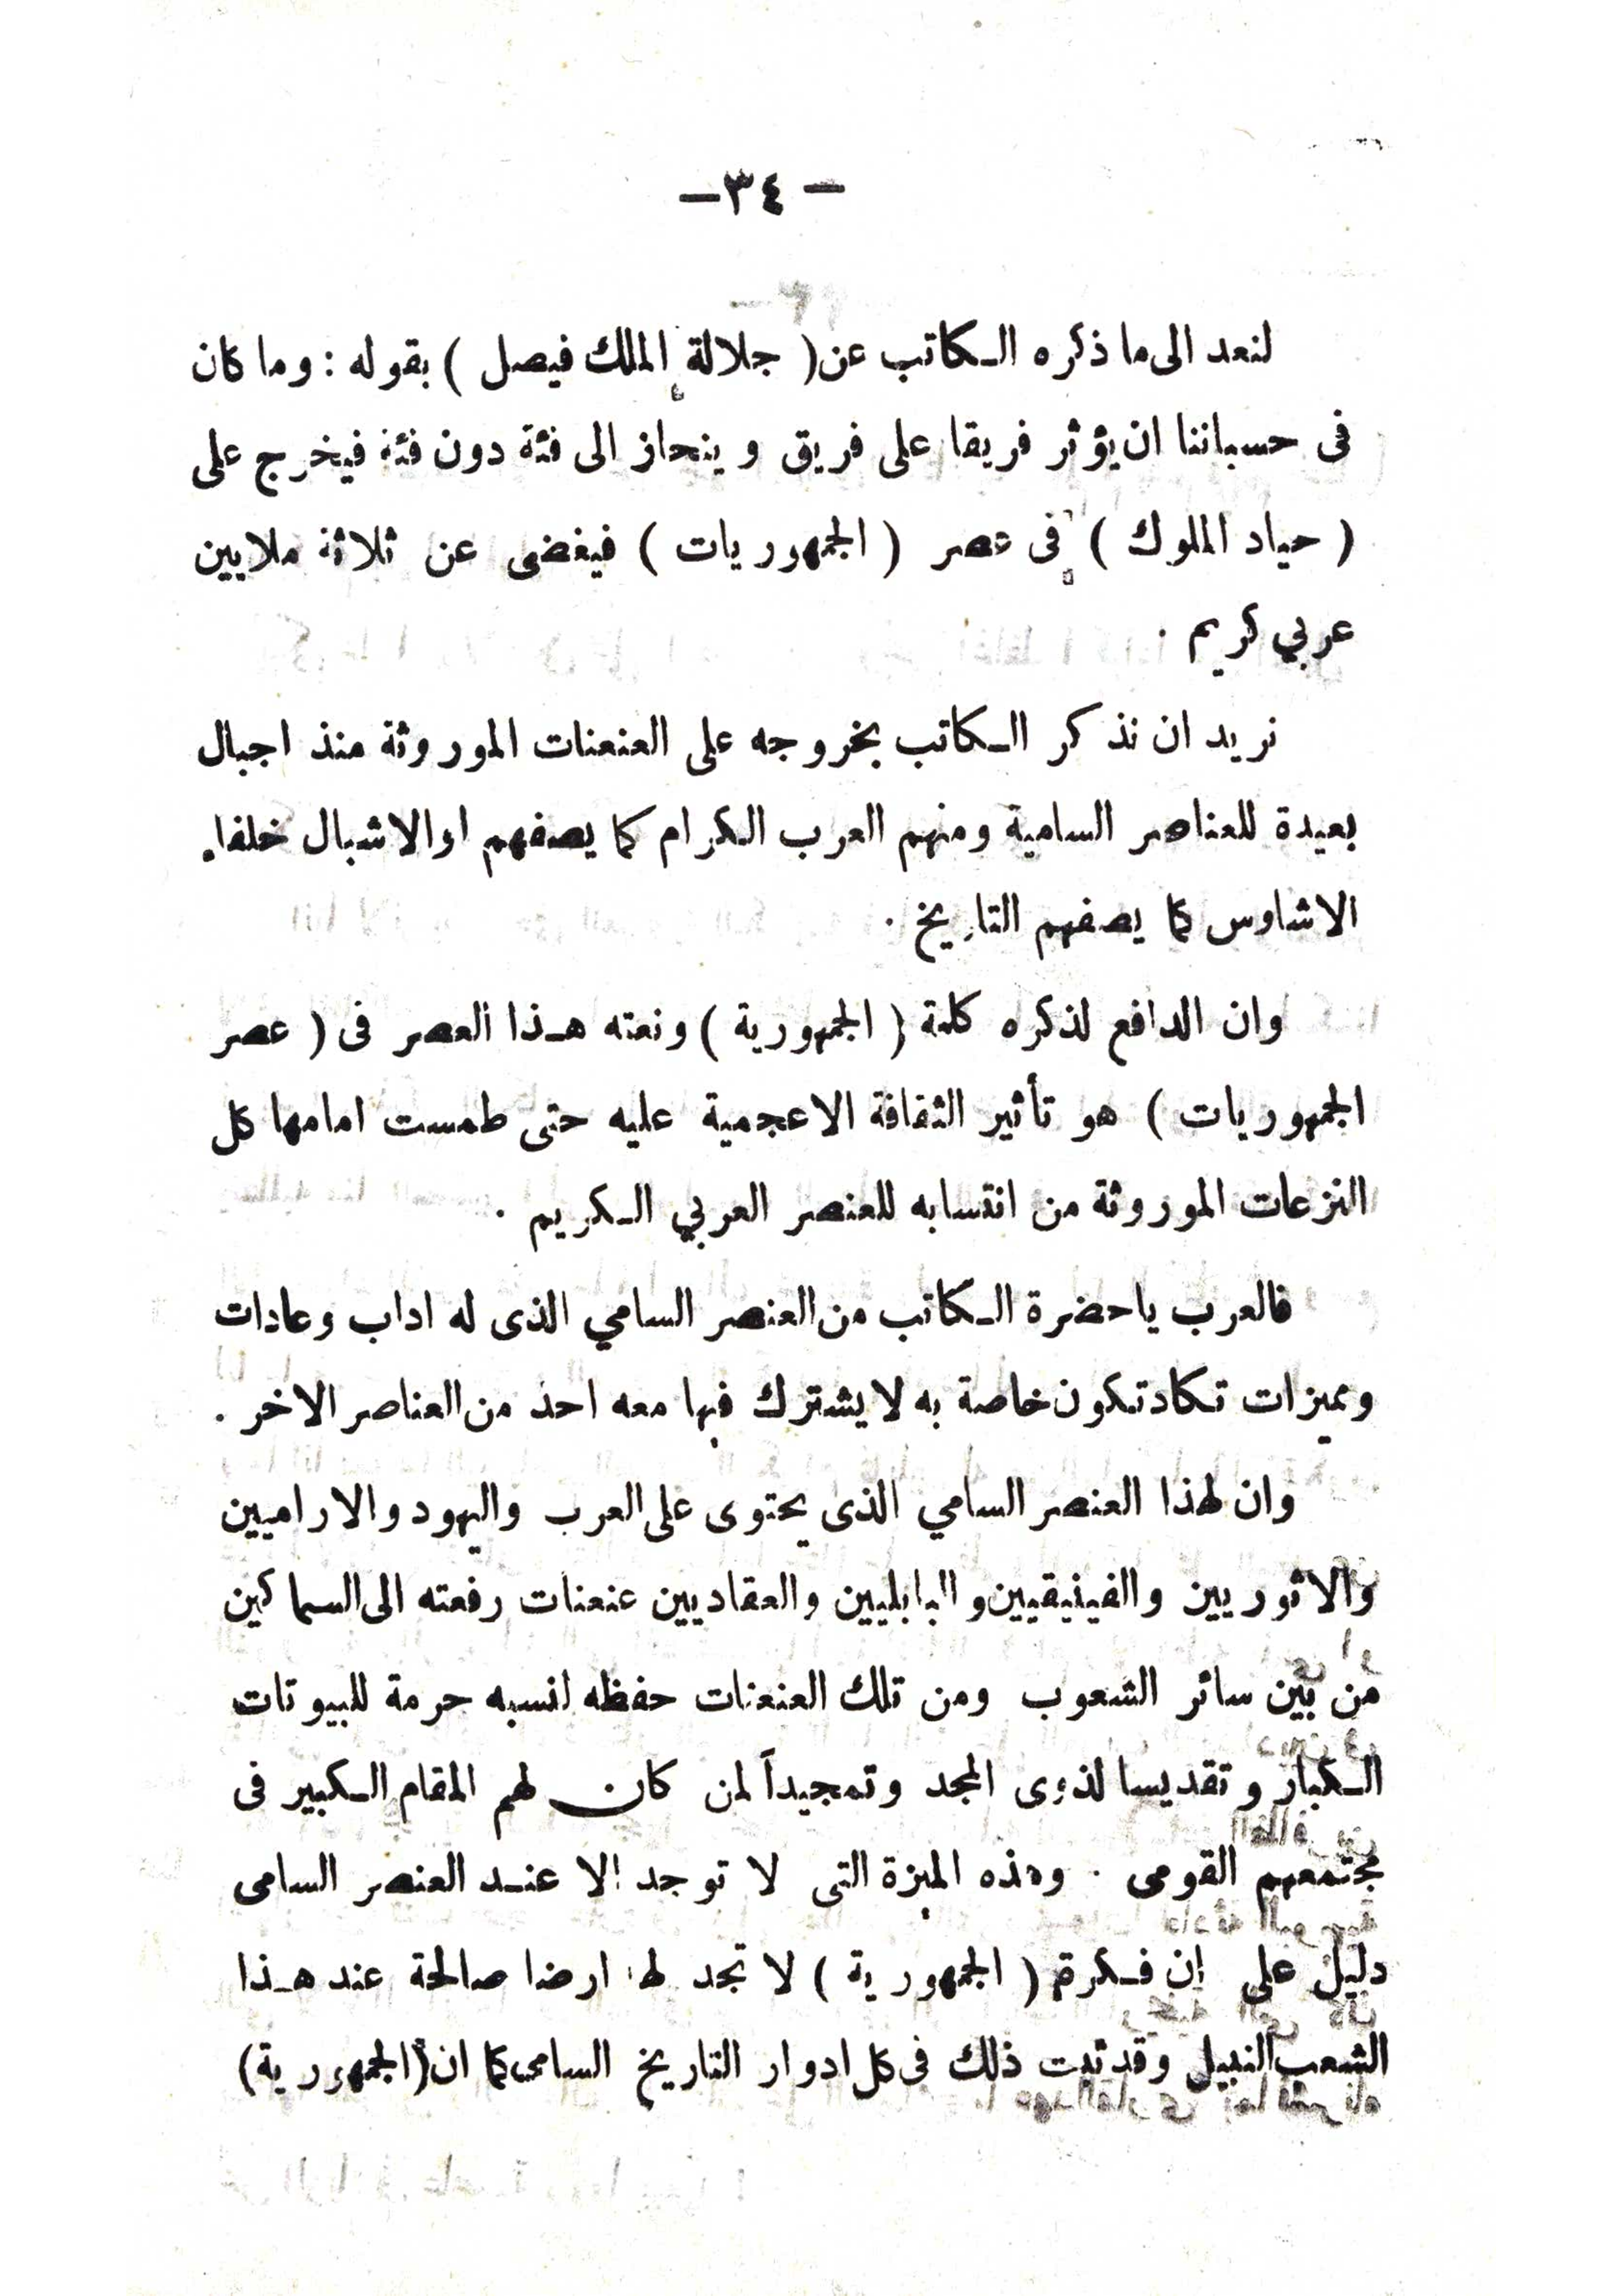 — ٣٤ —
لنعد الى ما ذكره الكاتب عن ( جلالة الملك فيصل ) بقوله : وما كان
فى حسباننا ان يؤثر فريقا على فريق وينحاز الى فئة دون فئة فيخرج على
( حياد الملوك ) فى عصر ( الجمهوريات ) فيغضى عن ثلاثة ملايين
عربي كريم .
نريد ان نذكر الكاتب بخروجه على العنعنات الموروثة منذ اجيال
بعيدة للعناصر السامية ومنهم العرب الكرام كما يصفهم او الاشبال خلفاء
الاشاوس كما يصفهم التاريخ .
وان الدافع لذكره كلمة ( الجمهورية ) ونعته هذا العصر فى ( عصر
الجمهوريات ) هو تأثير الثقافة الاعجمية عليه حتى طمست امامها كل
النزعات الموروثة من انتسابه للعنصر العربي الكريم .
فالعرب ياحضرة الكاتب من العنصر السامي الذى له اداب وعادات
ومميزات تكاد تكون خاصة به لا يشترك فيها معه احد من العناصر الاخر .
وان لهذا العنصر السامي الذى يحتوى على العرب واليهود والاراميين
والاثوريين والفينيقيين والبابليين والعقاديين عنعنات رفعته الى السماكين
من بين سائر الشعوب ومن تلك العنعنات حفظه لنسبه حرمة للبيوتات
الكبار وتقديسا لذوى المجد وتمجيداً لمن كان لهم المقام الكبير فى
مجتمعهم القومى . وهذه الميزة التى لا توجد الا عند العنصر السامى
دليل على ان فكرة ( الجمهورية ) لا تجد لها ارضا صالحة عند هذا
الشعب النبيل وقد ثبت ذلك فى كل ادوار التاريخ السامى كما ان ( الجمهورية )